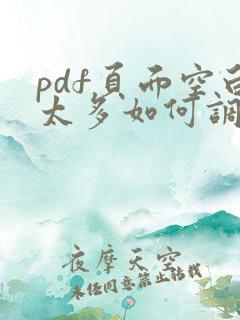 pdf頁面空白
太多如何調
夜摩天空
未經同意禁止轉載